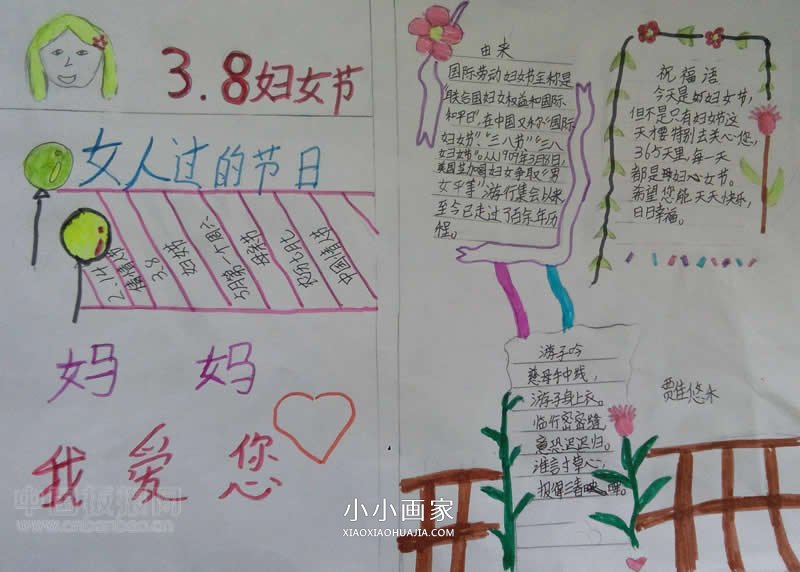 3.8妇女节
女人过的节日
2.14
情人节
3.8
妇女节
5月第一个周六
母亲节
农历七月七
中国情人节
妈 妈
我 爱 您
由来
国际劳动妇女节全称是
"联合国妇女权益和国际
和平日",在中国又称"国际
妇女节"、"三八节""三八
妇女节"。从1909年3月8日,
美国芝加哥妇女争取"男
女平等"游行集会以来
至今已走过了百余年历
程。
祝福语
今天是妇女节,
但不是只有妇女节这
天才要特别去关心您,
365天里,每一天
都是母妇女节。
希望您能天天快乐,
日日幸福。
游子吟
慈母手中线,
游子身上衣。
临行密密缝
意恐迟迟归。
谁言寸草心,
报得三春晖。
贾佳悠禾
中国板报网
www.cnbanbao.cn
小小画家
XIAOXIAOHUAJIA.COM